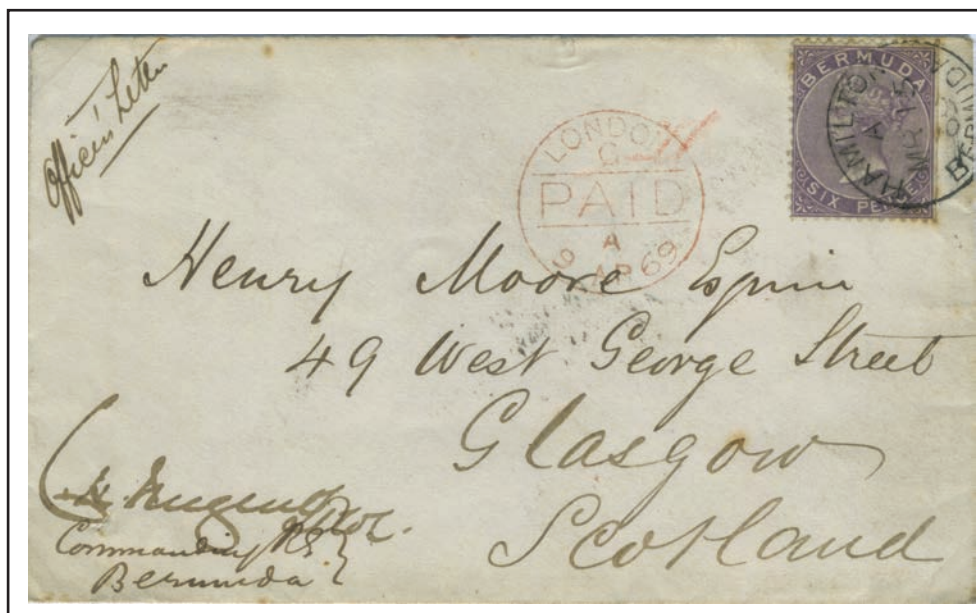 Officers' Letter
BERMUDA
SIX PENCE
HAMILTON
A
MR 15
BERMUDA
LONDON
PAID
6 A
AP 69
Henry Moore Esquire
49 West George Street
Glasgow
Scotland
Commanding RE
Bermuda